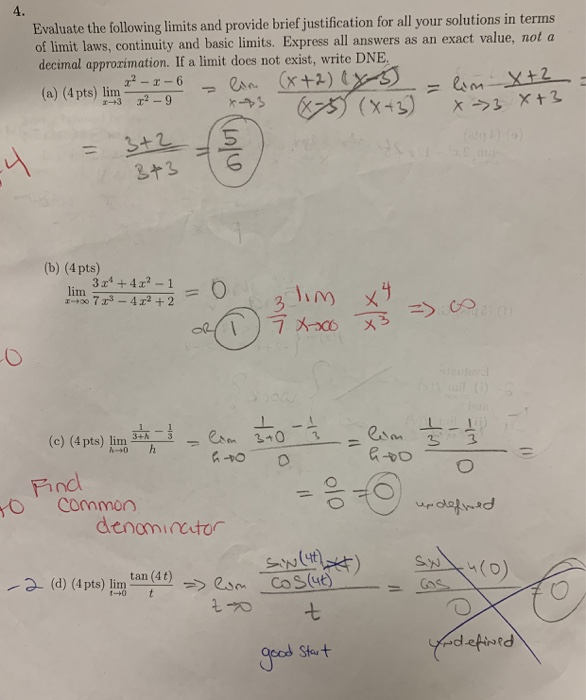 4.
Evaluate the following limits and provide brief justification for all your solutions in terms
of limit laws, continuity and basic limits. Express all answers as an exact value, not a
decimal approximation. If a limit does not exist, write DNE.
(a) (4 pts) lim x→3 (x² − x − 6)/(x² − 9) = lim x→3 (x+2)(x-3)/(x-3)(x+3) = lim x→3 (x+2)/(x+3) =
= (3+2)/(3+3) = 5/6
4
(b) (4 pts)
lim x→∞ (3x⁴ + 4x² − 1)/(7x³ − 4x² + 2) = 0
OR 1
3/7 lim x→∞ x⁴/x³ => ∞
0
(c) (4 pts) lim h→0 (1/(3+h) − 1/3)/h = lim h→0 (1/(3+0) - 1/3)/0 = lim h→0 (1/3 - 1/3)/0 =
= 0/0 = 0 undefined
+0 Find
common
denominator
-2 (d) (4 pts) lim t→0 tan (4t)/t => lim t→0 (sin(4t)/cos(4t))/t = (sin/cos 4(0))/0 = 0
undefined
good start